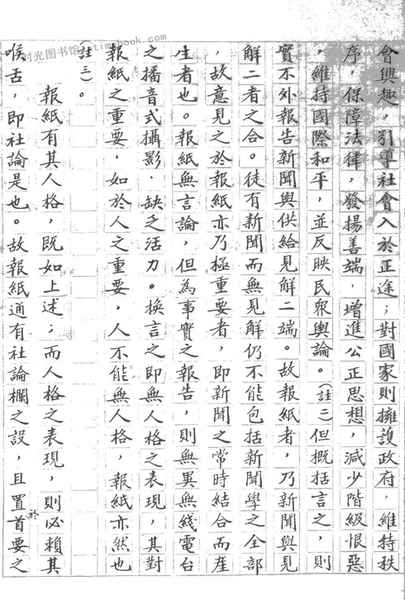 會興趣，引導社會入於正途；對國家則擁護政府，維持秩
序，保障法律，發揚善端，增進公正思想，減少階級恨惡
，維持國際和平，並反映民衆輿論。（註三）但概括言之，則
實不外報告新聞與供給見解二端。故報紙者，乃新聞與見
解二者之合。徒有新聞而無見解仍不能包括新聞學之全部
，故意見之於報紙亦乃極重要者，即新聞之常時結合而產
生者也。報紙無言論，但為事實之報告，則無異無綫電台
之播音式攝影，缺乏活力。換言之即無人格之表現，其對
報紙之重要，如於人之重要，人不能無人格，報紙亦然也
（註三）。
報紙有其人格，既如上述；而人格之表現，則必賴其
喉舌，即社論是也。故報紙通有社論欄之設，且置首要之
於